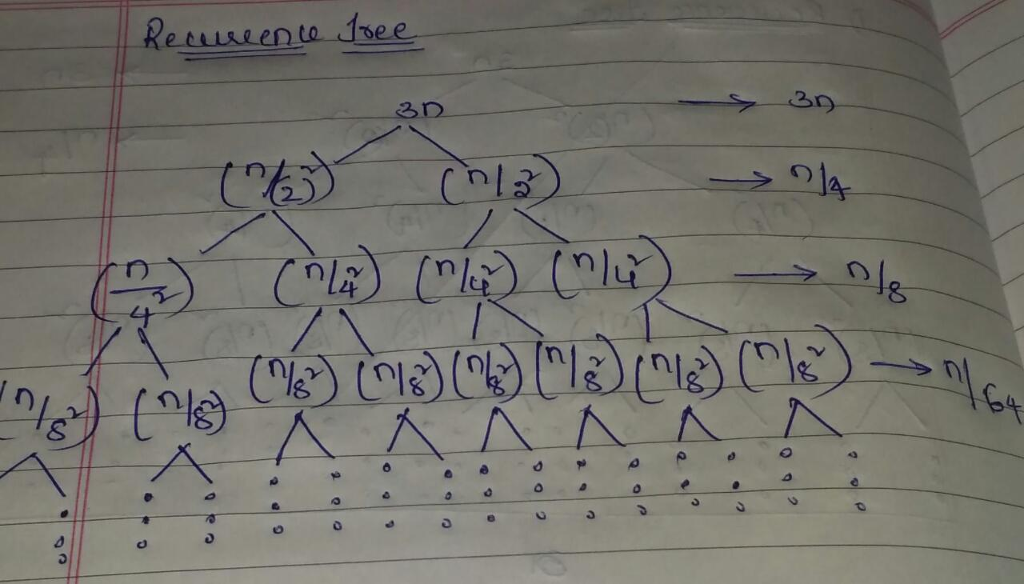 Recurrence Tree
3n → 3n
(n/2²) (n/2²) → n/4
(n/4²) (n/4²) (n/4²) (n/4²) → n/8
(n/8²) (n/8²) (n/8²) (n/8²) (n/8²) (n/8²) (n/8²) (n/8²) → n/64